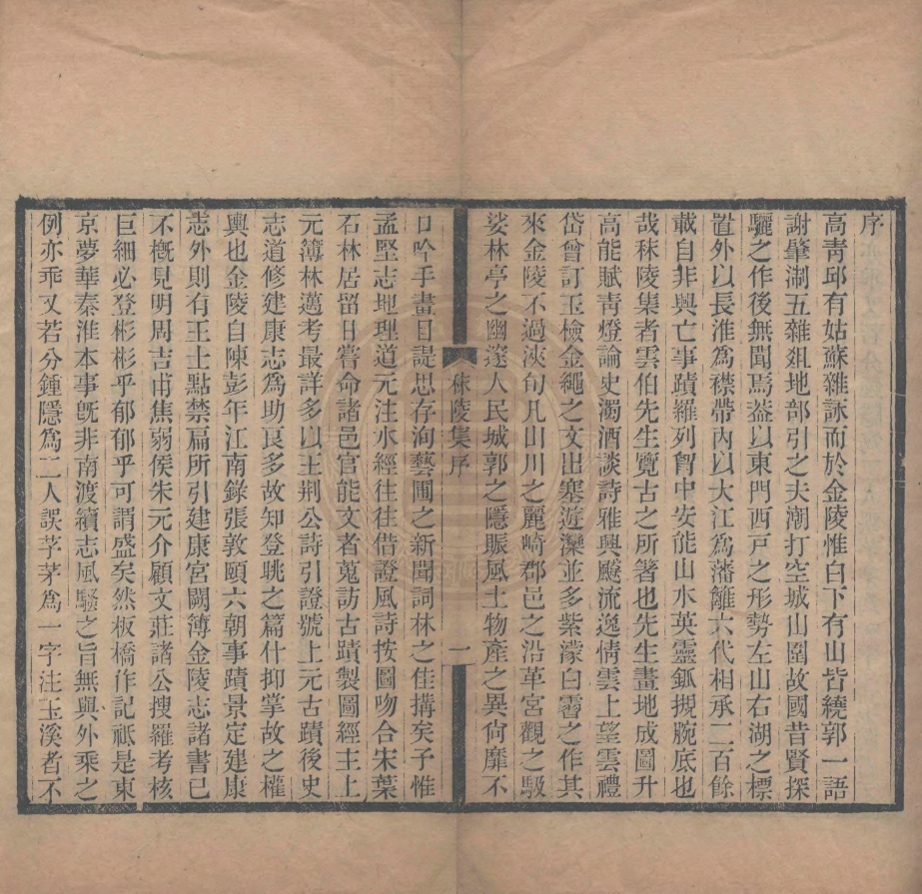 序
高靑邱有姑蘇雜詠而於金陵惟白下有山皆繞郭一語
謝肇淛五雜俎地部引之夫潮打空城山圍故國昔賢探
驪之作後無聞焉葢以東門西戸之形勢左山右湖之標
置外以長淮爲襟帶內以大江爲藩籬六代相承二百餘
載自非興亡事蹟羅列胷中安能山水英靈鈲摫腕底也
哉秣陵集者雲伯先生覽古之所著也先生畫地成圖升
高能賦靑燈論史濁酒談詩雅興飈流逸情雲上望雲禮
岱曾訂玉檢金繩之文出塞遊灤並多紫濛白霫之作其
來金陵不過浹旬凡山川之麗崎郡邑之沿革宮觀之駊
娑林亭之幽邃人民城郭之隱賑風土物產之異尙靡不
秣陵集序 一
口吟手畫目諟思存洵藝圃之新聞詞林之佳搆矣子惟
孟堅志地理道元注水經往往借證風詩按圖吻合宋葉
石林居留日嘗命諸邑官能文者蒐訪古蹟製圖經主上
元簿林邁考最詳多以王荆公詩引證號上元古蹟後史
志道修建康志爲助良多故知登眺之篇什抑掌故之權
輿也金陵自陳彭年江南錄張敦頤六朝事蹟景定建康
志外則有王士點禁扁所引建康宮闕簿金陵志諸書已
不槪見明周吉甫焦弱侯朱元介顧文莊諸公搜羅考核
巨細必登彬彬乎郁郁乎可謂盛矣然板橋作記祗是東
京夢華秦淮本事旣非南渡續志風騷之旨無與外乘之
例亦乖又若分鍾隱爲二人誤芧茅爲一字注玉溪者不